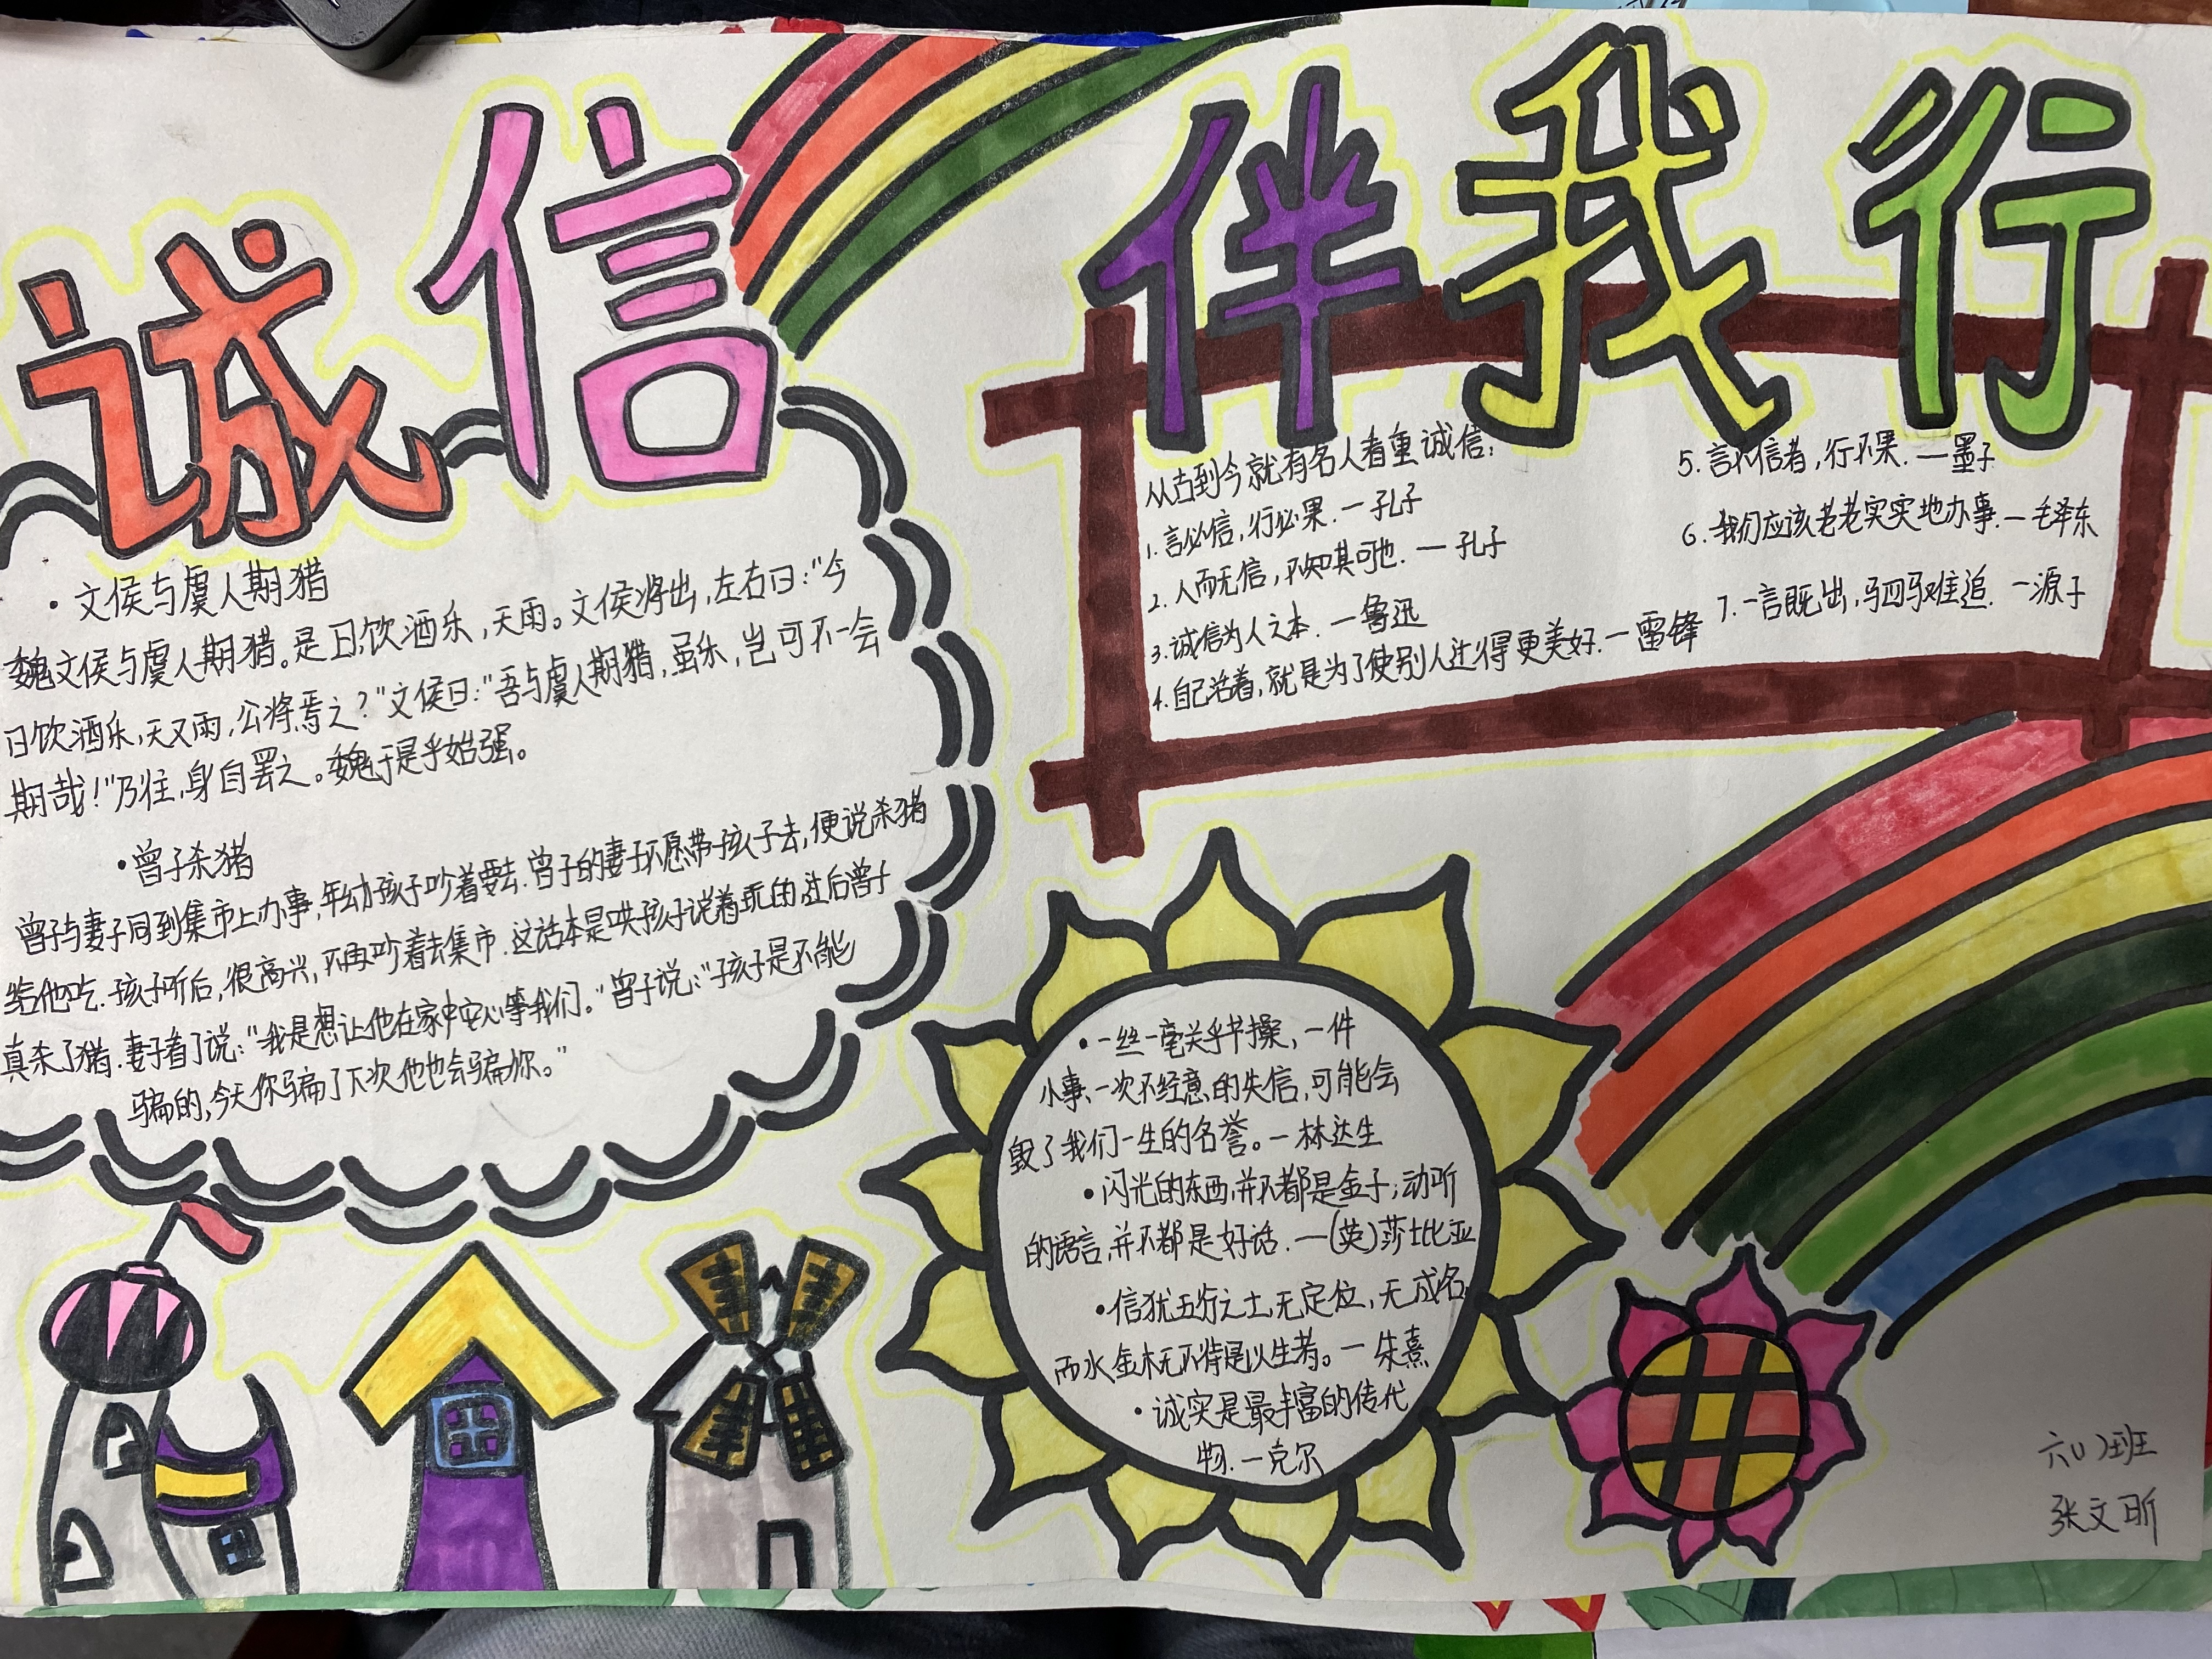 诚信
伴我行
·文侯与虞人期猎
魏文侯与虞人期猎。是日,饮酒乐,天雨。文侯将出,左右曰:“今
日饮酒乐,天又雨,公将焉之?”文侯曰:“吾与虞人期猎,虽乐,岂可不一会
期哉!”乃往,身自罢之。魏于是乎始强。
·曾子杀猪
曾子与妻子同到集市上办事,年幼孩子吵着要去.曾子的妻子不愿带孩子去,便说杀猪
给他吃.孩子听后,很高兴,不再吵着去集市.这话本是哄孩子说着玩的,过后曾子
真杀了猪.妻子看了说:“我是想让他在家中安心等我们。”曾子说:“孩子是不能
骗的,今天你骗了下次他也会骗你。”
从古到今就有名人看重诚信:
1.言必信,行必果.一孔子
2.人而无信,不知其可也.一孔子
3.诚信为人之本.一鲁迅
4.自己活着,就是为了使别人过得更美好.一雷锋
5.言不信者,行不果.一墨子
6.我们应该老老实实地办事.一毛泽东
7.一言既出,驷马难追.一源子
·一丝一毫关乎节操,一件
小事、一次不经意的失信,可能会
毁了我们一生的名誉。一林达生
·闪光的东西,并不都是金子;动听
的语言,并不都是好话.一(英)莎士比亚
·信犹五行之土,无定位,无成名,
而水金木无不待是以生者。一朱熹
·诚实是最丰富的传代
物.一克尔
六(1)班
张文昕